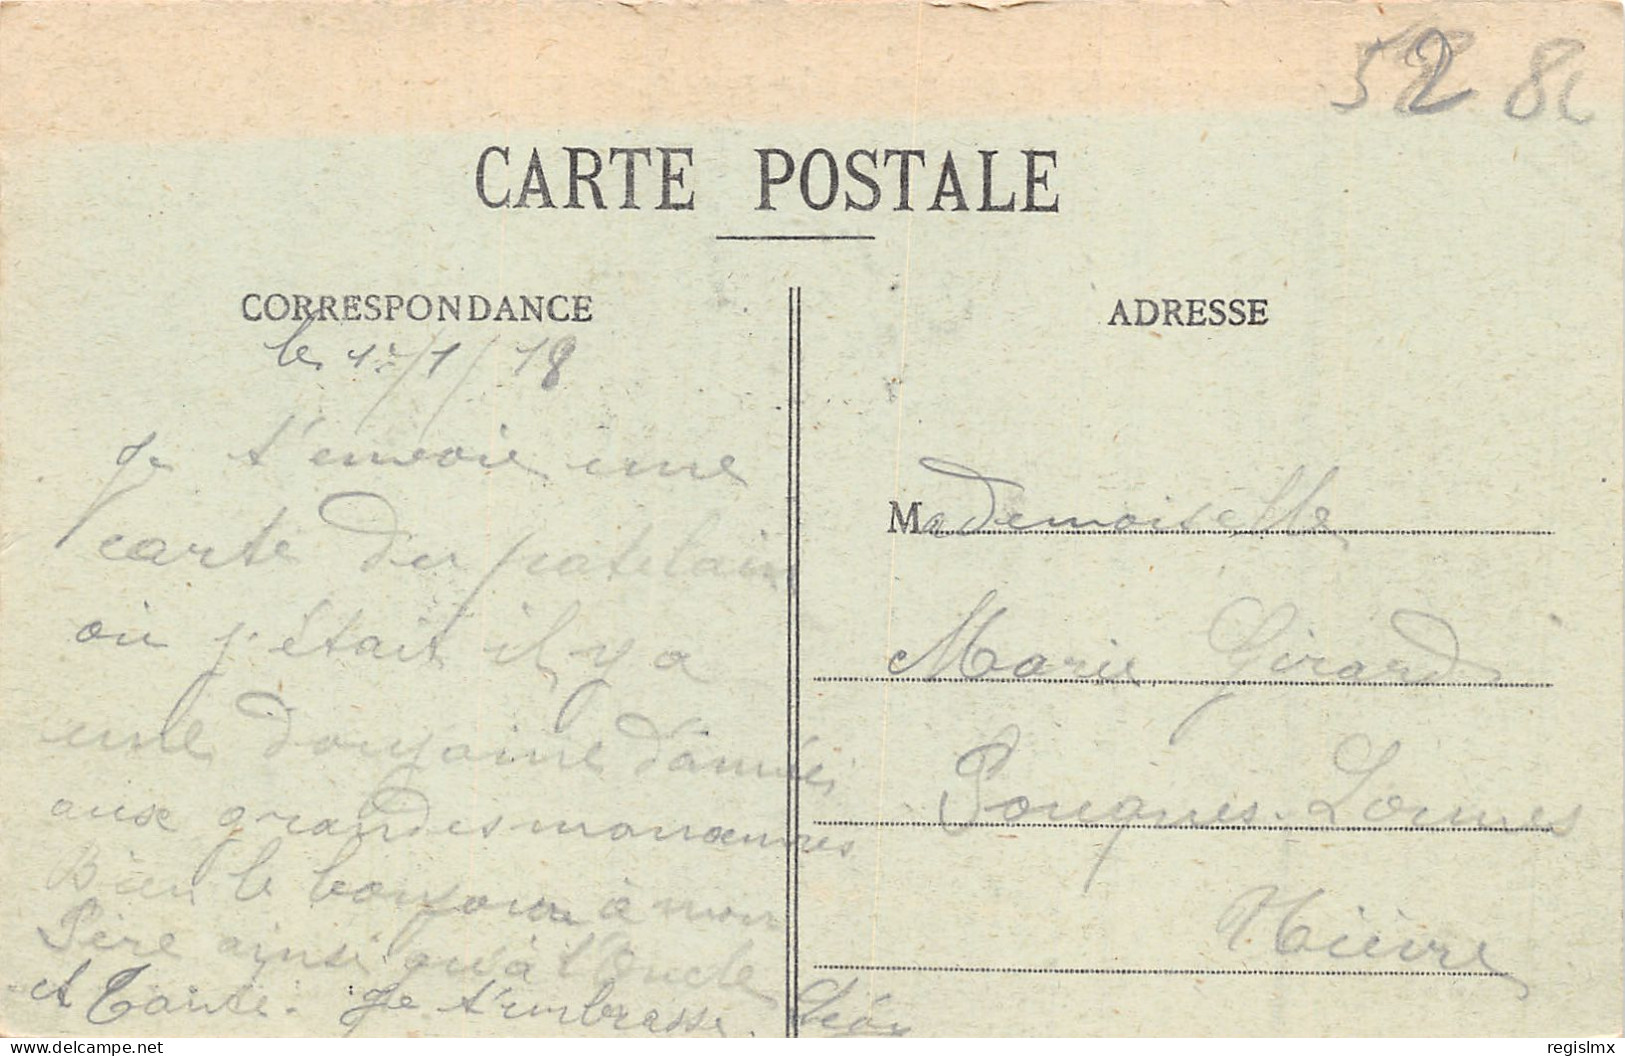 52
CARTE POSTALE
CORRESPONDANCE
le 17/1/18
Je t'envoie une
carte du patelain
où j'était il y a
une douzaine d'année
aux grandes manoeuvres
Bien le bonjour à mon
Père ainsi qu'à l'Oncle
et Tante. Je t'embrasse.
Léon
ADRESSE
Mademoiselle
Marie Girard
Pougues-
Nièvre
delcampe.net
regislmx